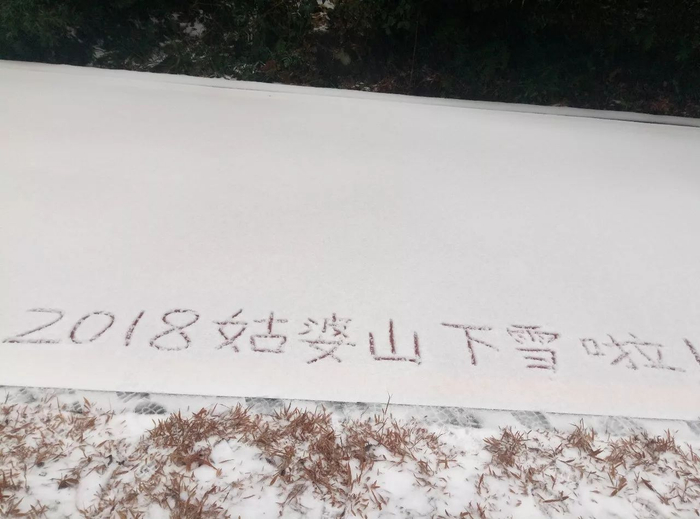 2018姑婆山下雪啦!